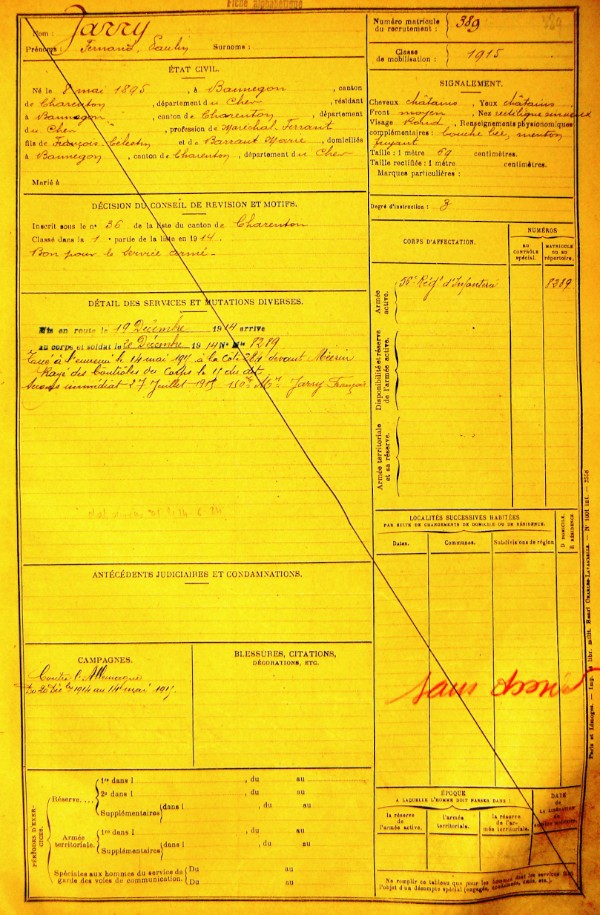 Fiche alphabétique
Nom : Jarry
Prénoms : Fernand, Paulin Surnoms :
Numéro matricule du recrutement : 389
Classe de mobilisation : 1915
ÉTAT CIVIL.
Né le 8 mai 1895, à Bannegon, canton
de Charenton, département du Cher, résidant
à Bannegon, canton de Charenton, département
du Cher, profession de Maréchal Ferrant
fils de François Célestin et de Barraut Marie, domiciliés
à Bannegon, canton de Charenton, département du Cher
Marié à
SIGNALEMENT.
Cheveux châtains Yeux châtains
Front moyen Nez rectiligne sinueux
Visage Rond Renseignements physionomiques
complémentaires : bouche menton
fuyant
Taille : 1 mètre 69 centimètres.
Taille rectifiée : 1 mètre centimètres.
Marques particulières :
Degré d'instruction : 3
DÉCISION DU CONSEIL DE REVISION ET MOTIFS.
Inscrit sous le n° 36 de la liste du canton de Charenton
Classé dans la 1e partie de la liste en 1914.
Bon pour le service armé
DÉTAIL DES SERVICES ET MUTATIONS DIVERSES.
Mis en route le 19 Décembre 1914 arrivé
au corps et soldat le 20 Décembre 1914 N° Mle 8289
Tué à l'ennemi le 14 mai 1915 à la Côte devant
Rayé des Contrôles du Corps le 15 du dit
Secours immédiat 27 Juillet 1915 150f Mr Jarry François
CORPS D'AFFECTATION.
NUMÉROS
AU CONTRÔLE spécial.
MATRICULE OU AU répertoire.
Armée active.
Régt d'Infanterie
8289
Disponibilité et réserve de l'armée active.
Armée territoriale et sa réserve.
LOCALITÉS SUCCESSIVES HABITÉES
PAR SUITE DE CHANGEMENTS DE DOMICILE OU DE RÉSIDENCE.
Dates.
Communes.
Subdivisions de région.
D DOMICILE.
R RÉSIDENCE
ANTÉCÉDENTS JUDICIAIRES ET CONDAMNATIONS.
CAMPAGNES.
Contre l'Allemagne
Du 20 Déc bre 1914 au 14 mai 1915
BLESSURES, CITATIONS,
DÉCORATIONS, ETC.
sans
PÉRIODES D'EXERCICES.
Réserve.... 1re dans l , du au
2e dans l , du au
Supplémentaires dans l , du au
Armée territoriale. 1re dans l , du au
Supplémentaires dans l , du au
Spéciales aux hommes du service de garde des voies de communication. Du au
Du au
ÉPOQUE
À LAQUELLE L'HOMME DOIT PASSER DANS :
la réserve de l'armée active.
l'armée territoriale.
la réserve de l'armée territoriale.
DATE
DE LA LIBÉRATION
Ne remplir ce tableau que pour les hommes dont les services font
l'objet d'un décompte spécial (engagés, omis, etc.).